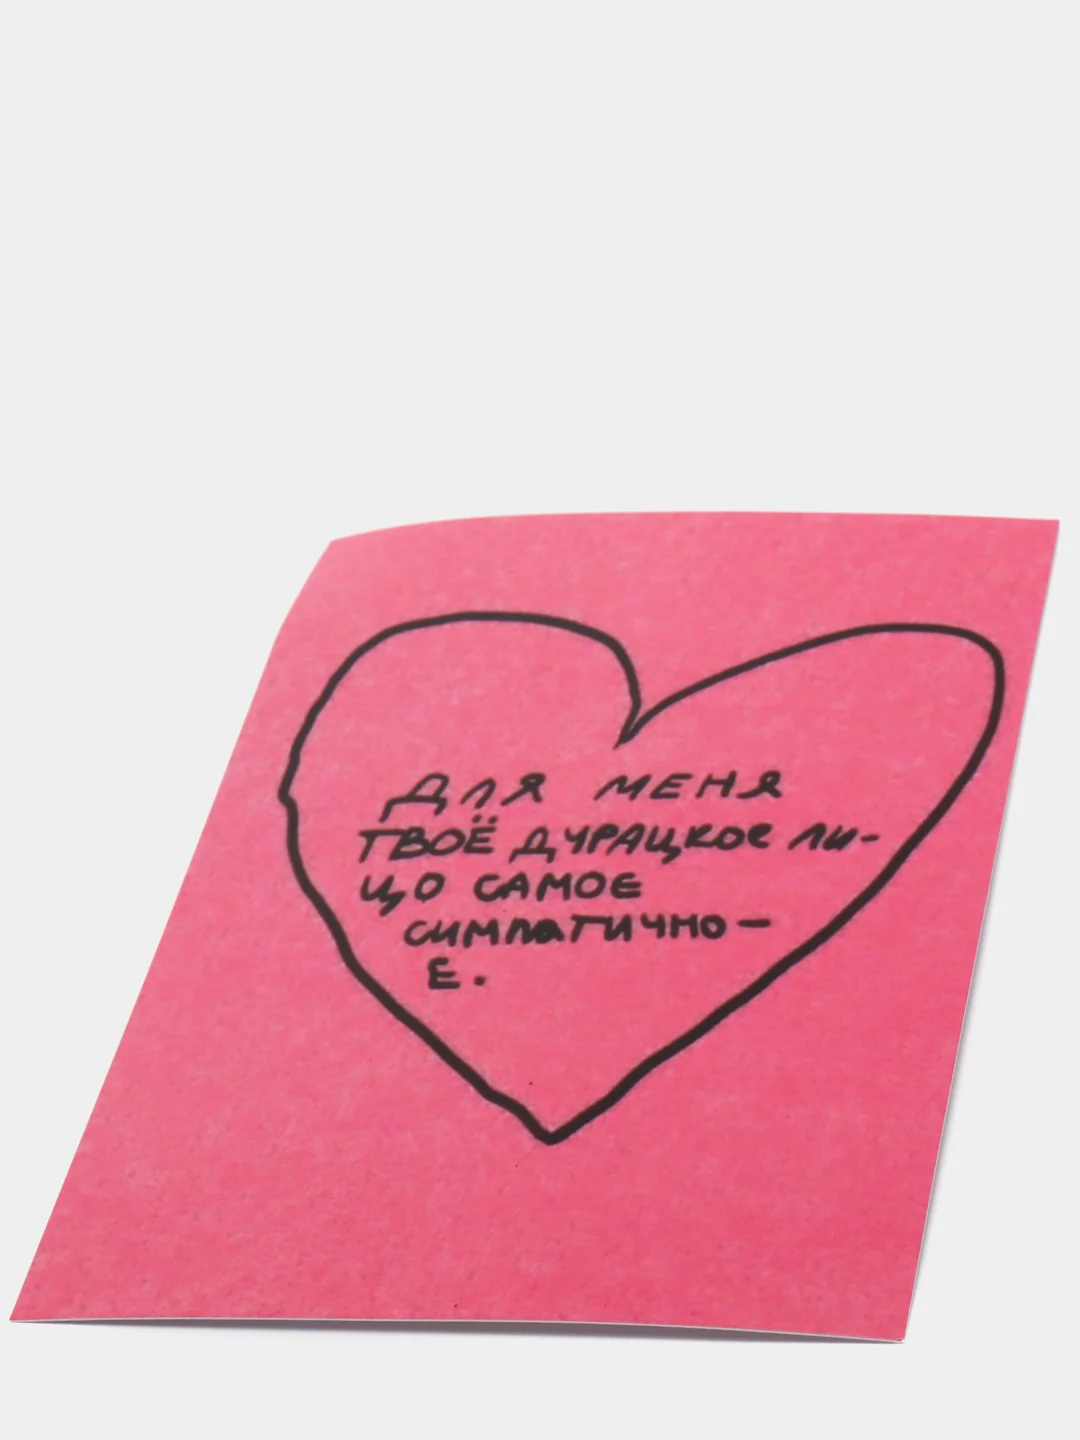 ДЛЯ МЕНЯ
ТВОЁ ДУРАЦКОЕ ЛИ-
ЦО САМОЕ
СИМПАТИЧНО-
Е.